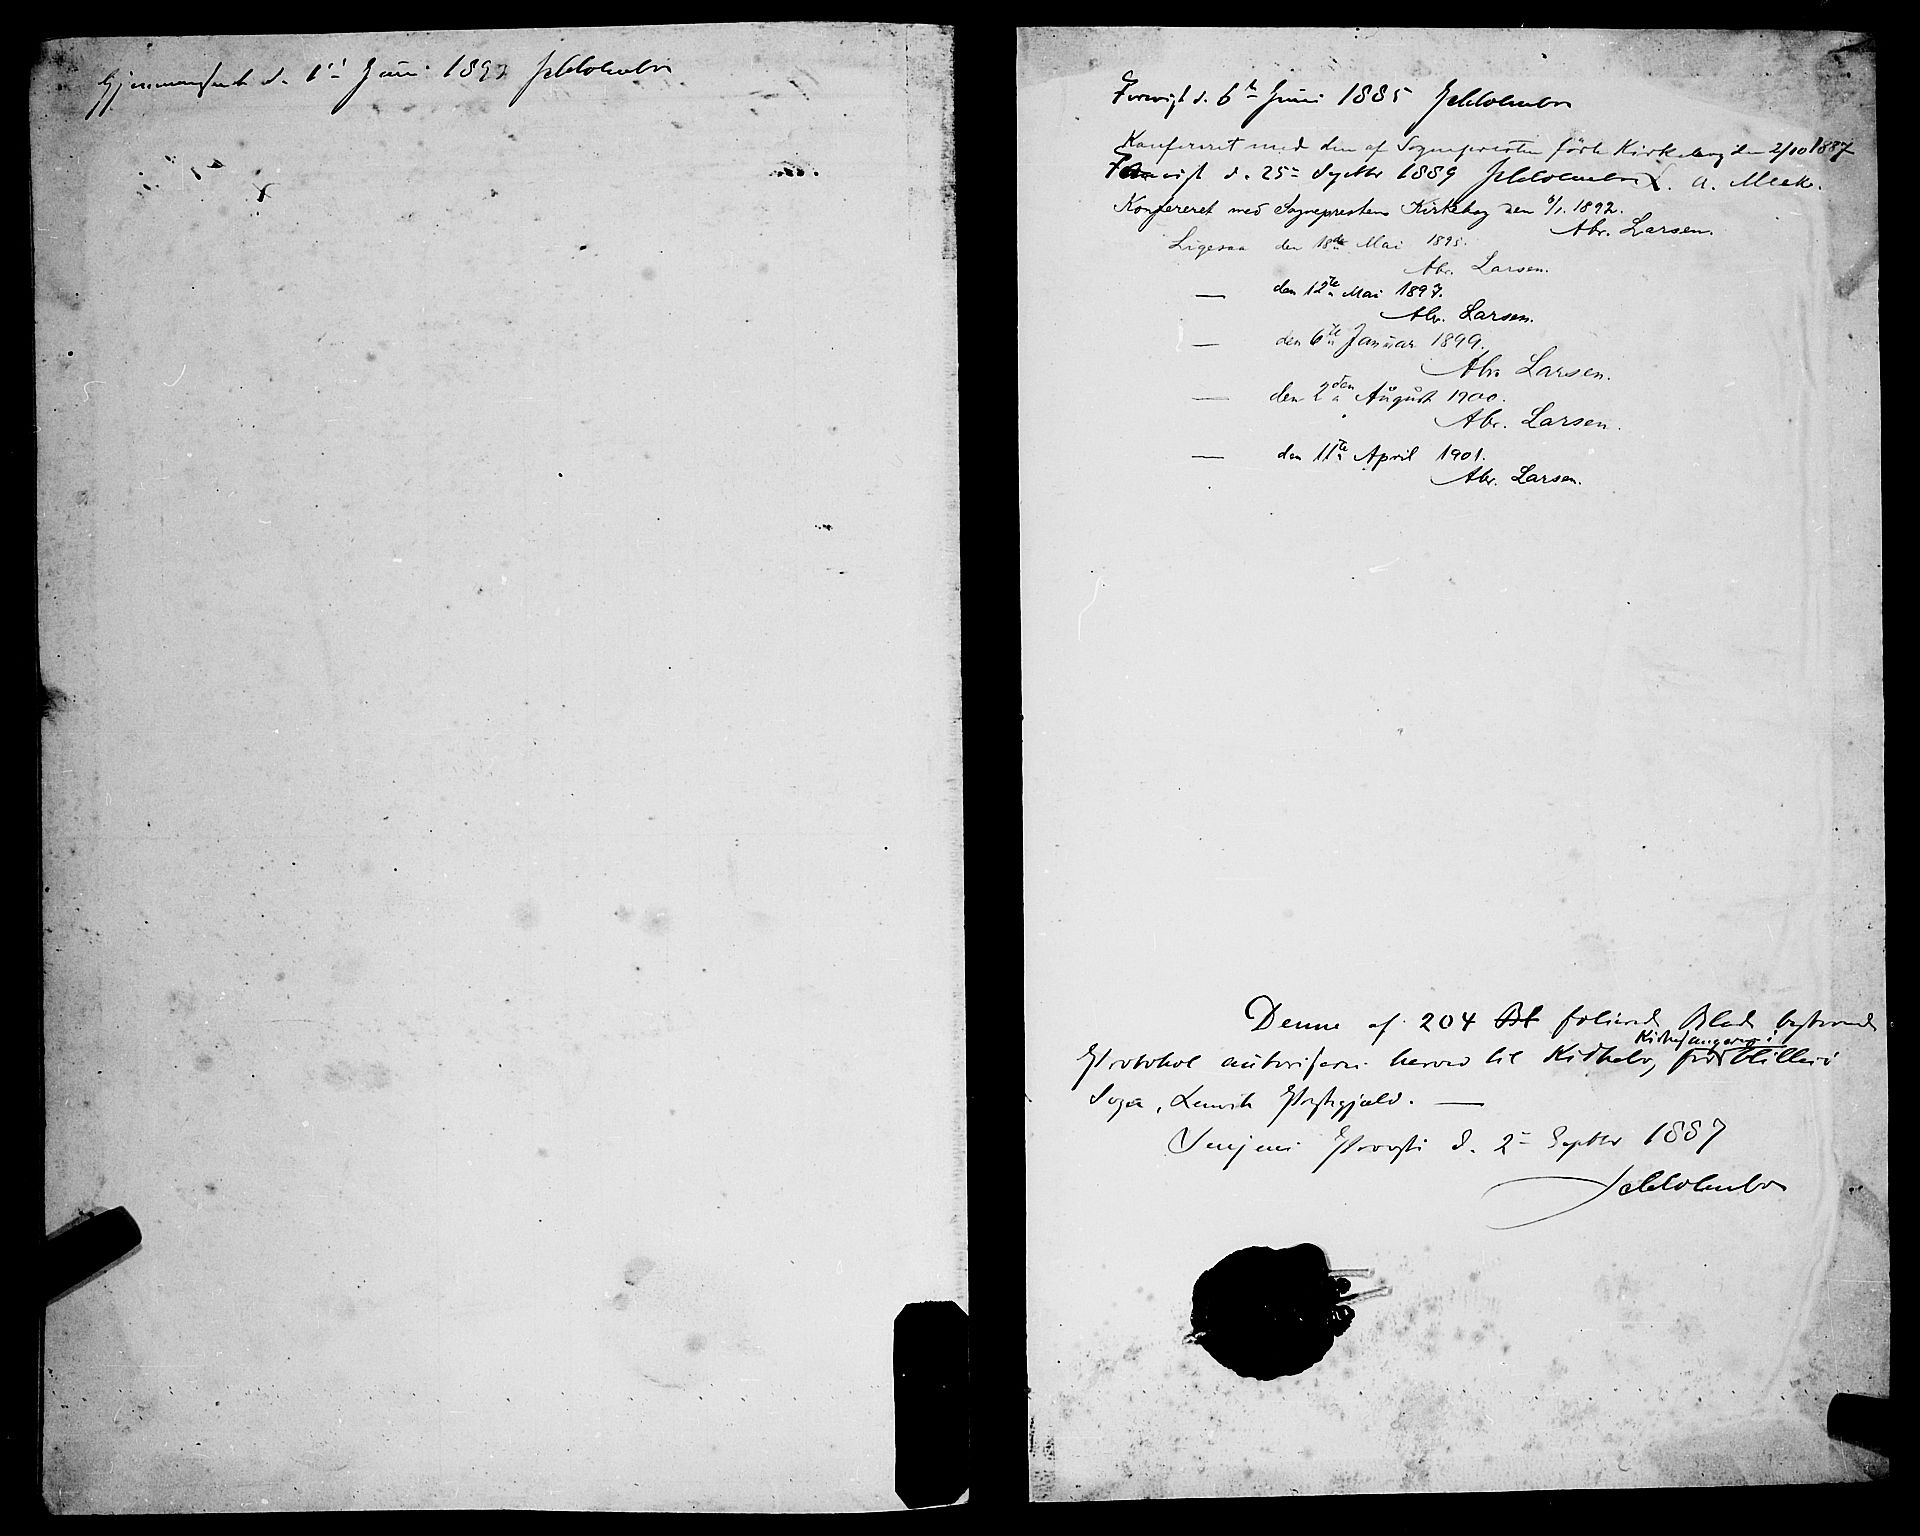 d. 1ste Juni 1893
Forevist d. 6te Juni 1885
Konfereret med den af Sognepresten förte Kirkebog den 2/10 1887
Forevist d. 25de Septbr 1889 A. Meek.
Konfereret med Sogneprestens Kirkebog den 6/1. 1892.
Abr. Larsen.
Ligesaa den 18de Mai 1895.
Abr. Larsen.
— den 12te Mai 1897.
Abr. Larsen.
— den 6te Januar 1899.
Abr. Larsen.
— den 2den August 1900.
Abr. Larsen.
— den 11te April 1901.
Abr. Larsen.
Denne af 204 Bl folierede Blade bestaaende
Kirkesangeren i
Protokol autoriseres herved til Kirkebog, for Hillesö
Sogn, Lenvik Prestegjæld. —
Senjens Provsti d. 2den Septbr 1887